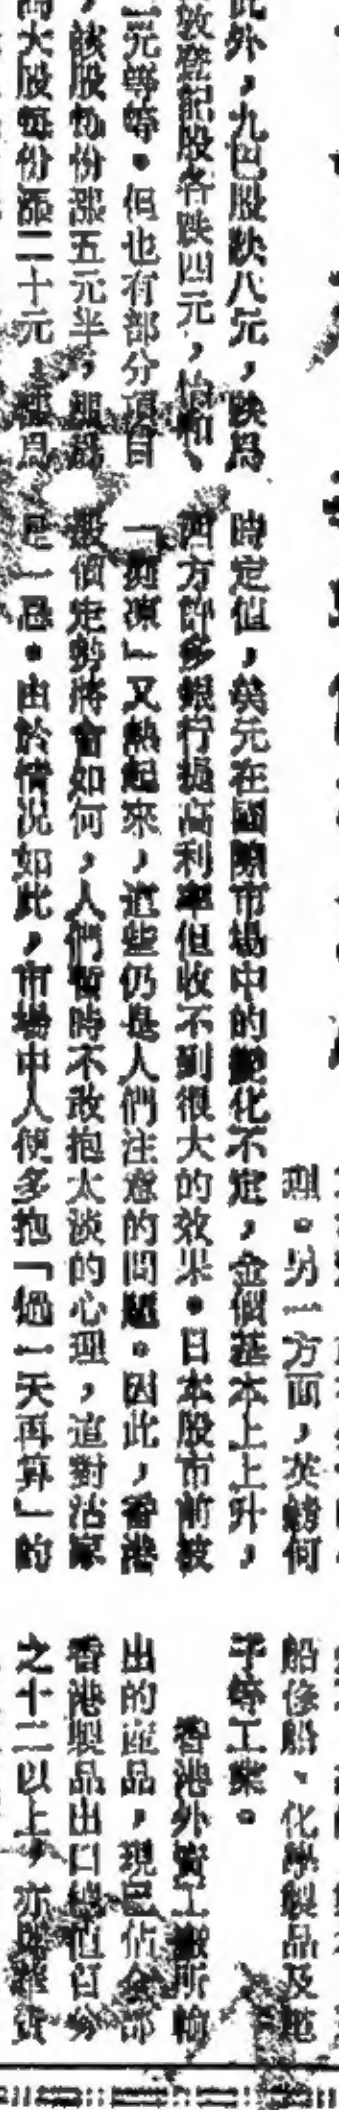 此外，九巴股跌八元，
登記股各跌四元，怡和、
元等等。但也有部分項目
，該股每份漲五元半，
大股每份漲二十元，
理。另一方面，英鎊何
時定值，美元在國際市場中的變化不定，金價基本上上升，
西方許多銀行提高利率但收不到很大的效果。日本股市前被
「凍」又熱起來，這些仍是人們注意的問題。因此，香港
股價走勢將會如何，人們暫時不敢抱太淡的心理，這對沽家
是一忌。由於情況如此，市場中人便多抱「過一天再算」的
船修船、化學製品及電
子等工業。
香港外資工廠所輸
出的產品，現已佔全部
香港製品出口總值百分
之十二以上，亦